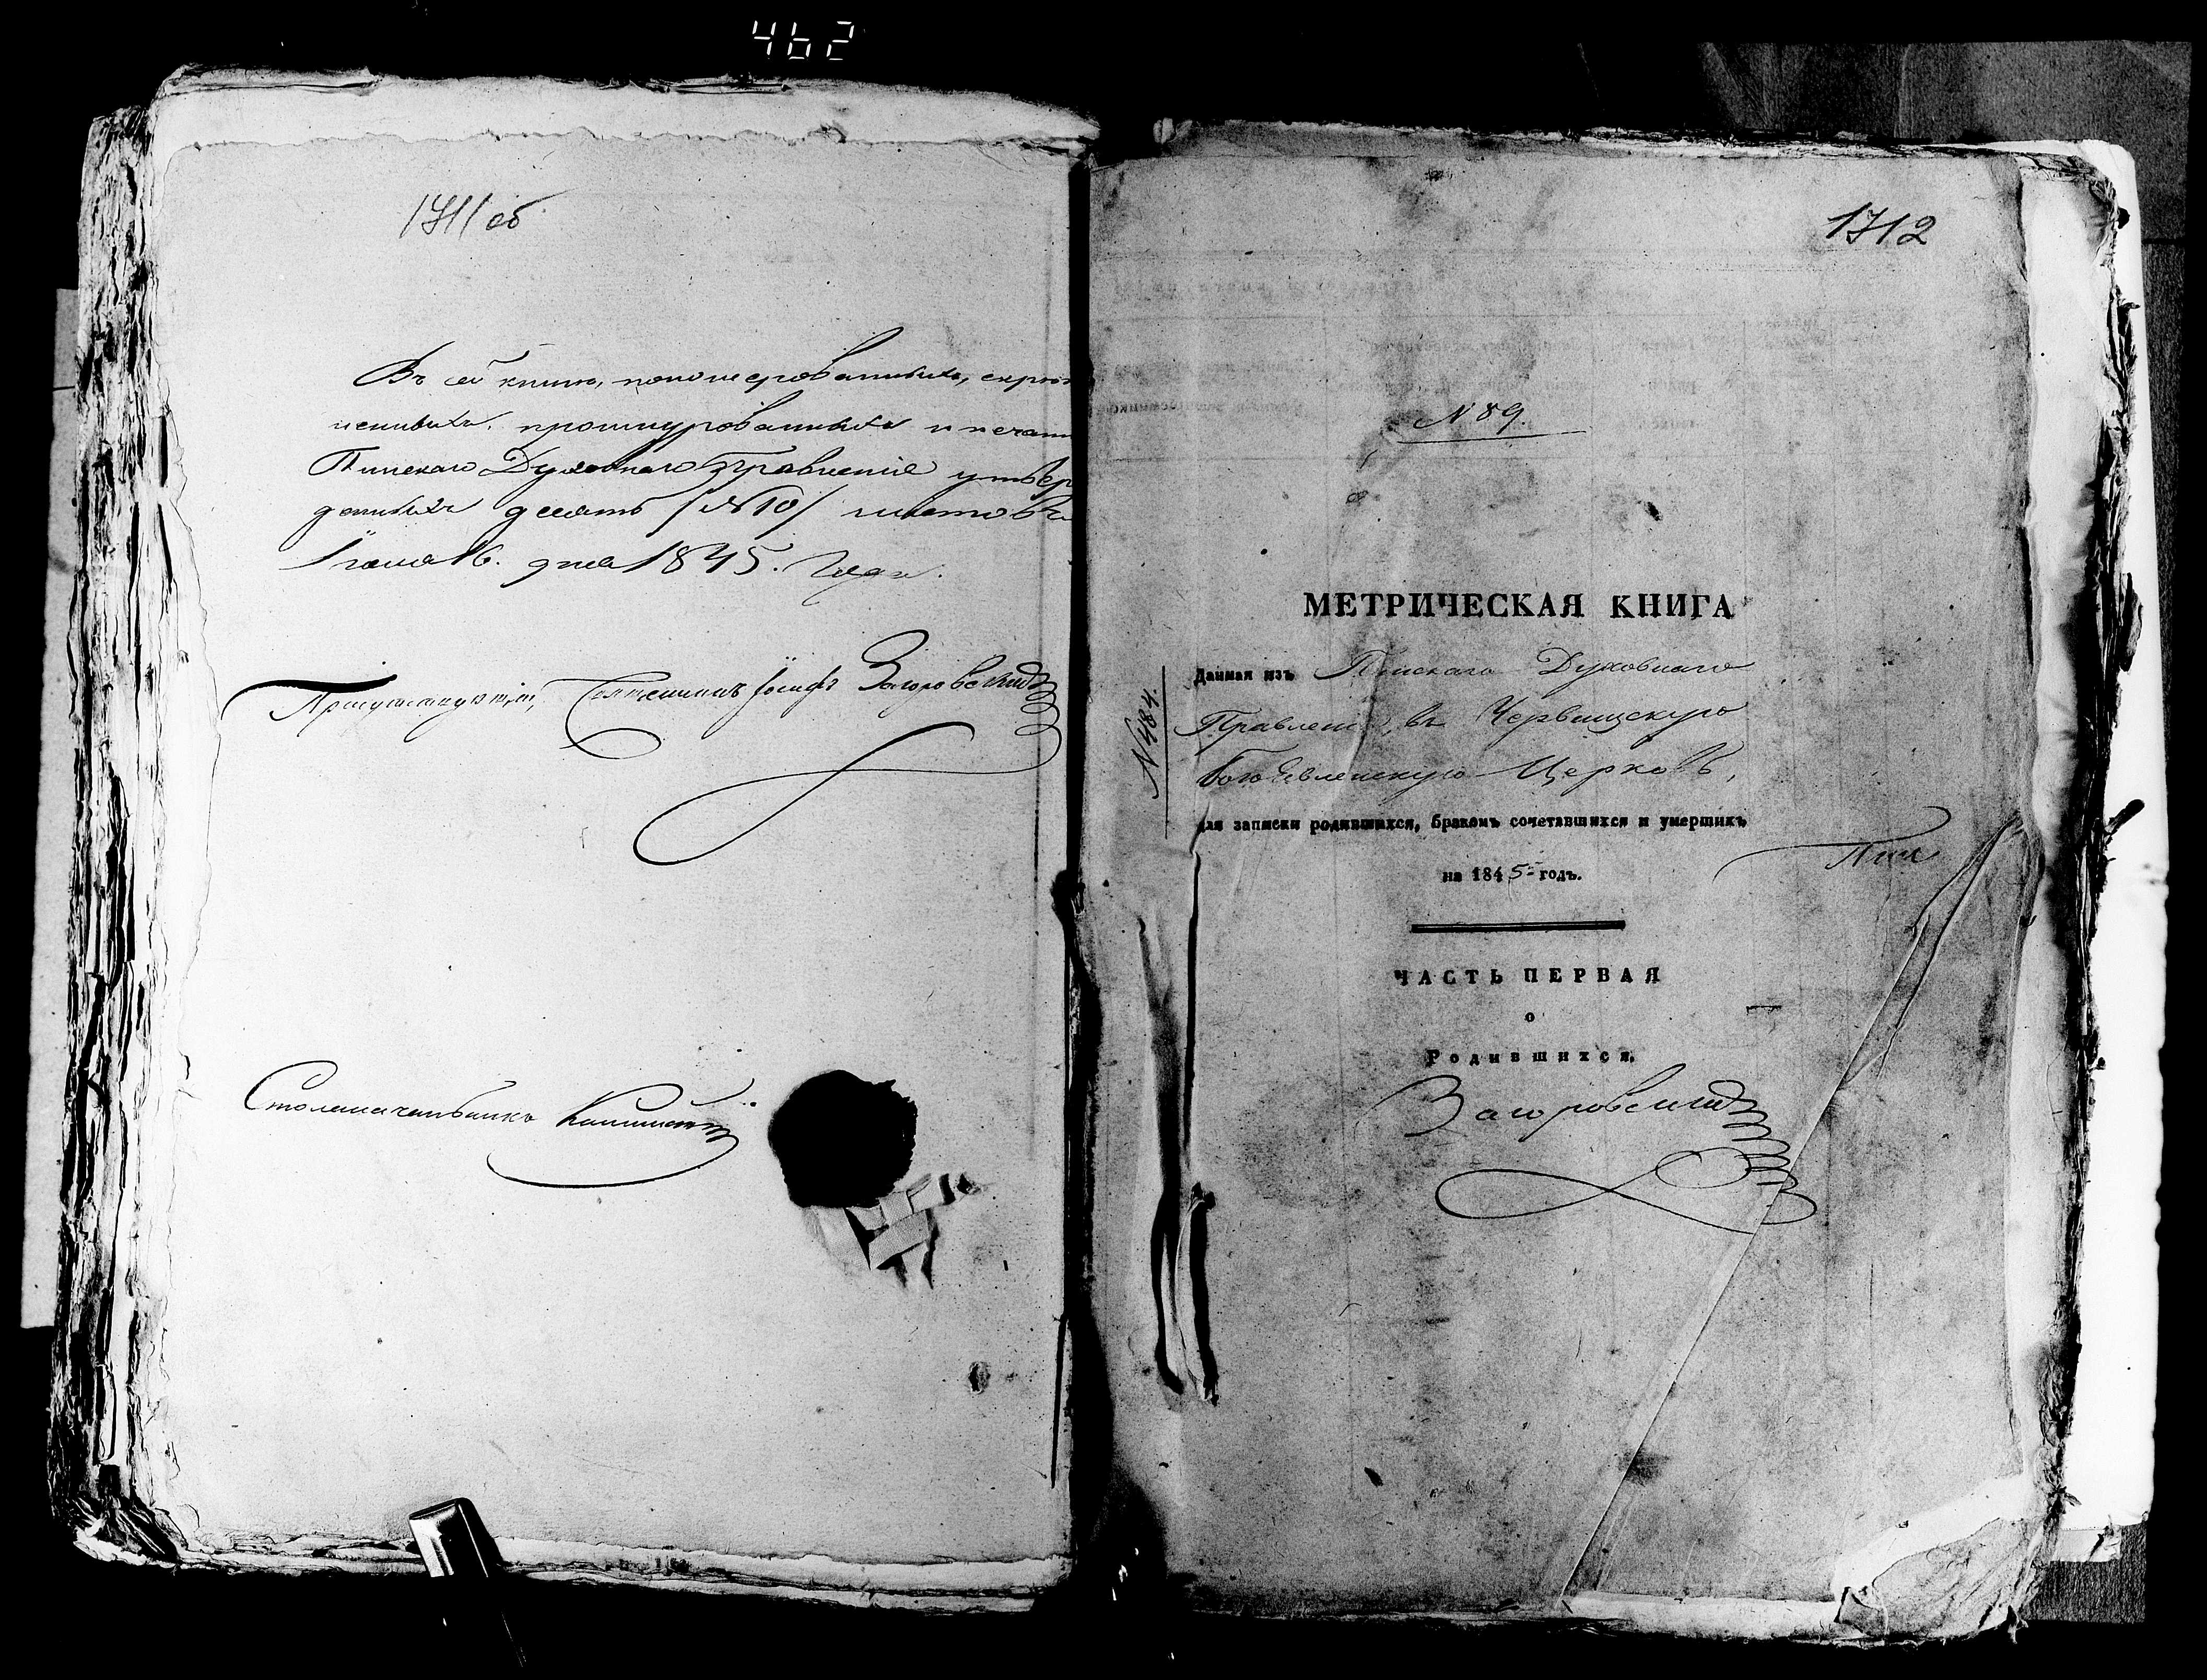 462
1711 об
Въ сей книгѣ, пономерованныхъ, скрѣп
ленныхъ, прошнурованныхъ и печатью
Пинскаго Духовнаго Правленія утвер
денныхъ десять /№ 10/ листовъ.
16. дня 1845. Года.
Присутствующій, Священникъ Іосифъ Загоровскій
Столоначальникъ
1712
№ 89.
МЕТРИЧЕСКАЯ КНИГА
Данная изъ Пинскаго Духовнаго
Правленія, въ Червищскую
Богоявленскую Церковь,
№ 484.
для записки родившихся, бракомъ сочетавшихся и умершихъ
на 1845 годъ.
Пин
ЧАСТЬ ПЕРВАЯ
о
Родившихся.
Загоровскій